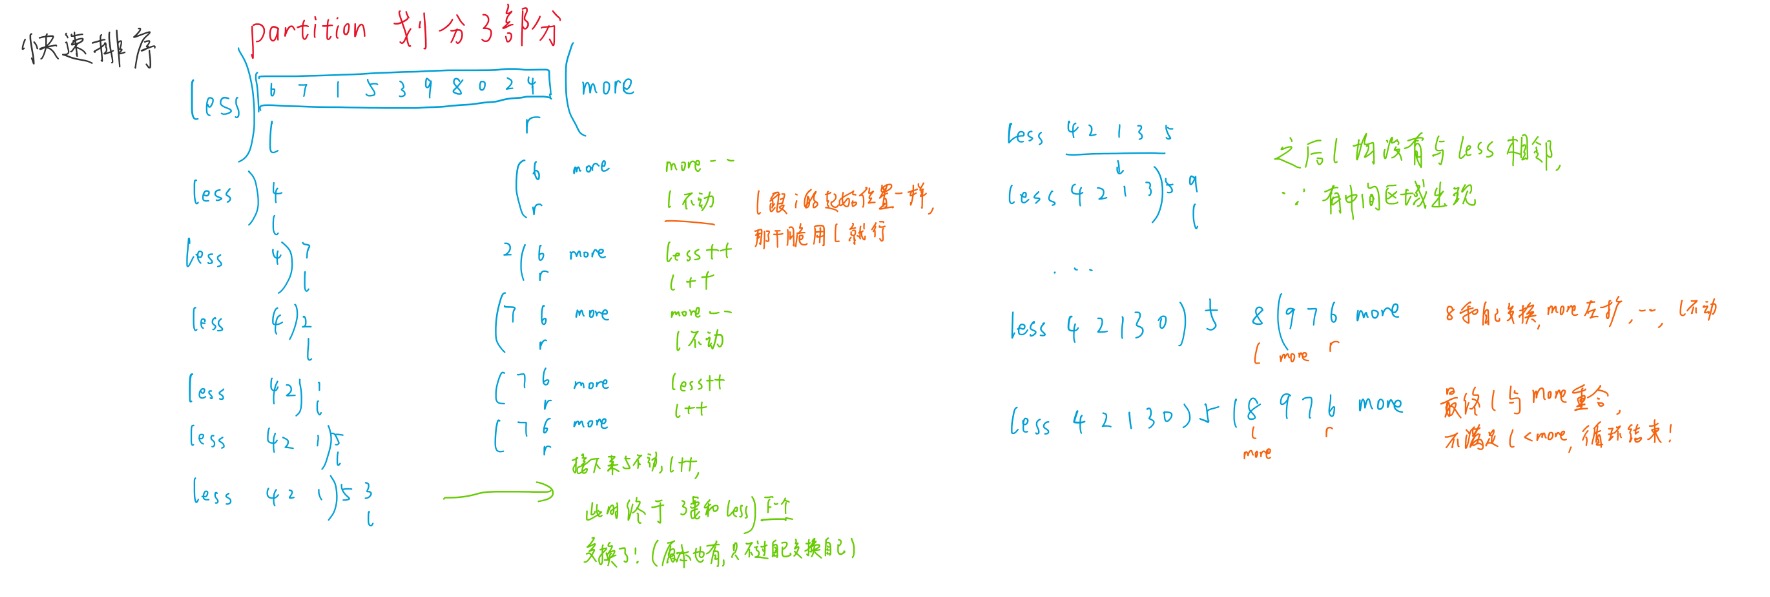 快速排序
partition 划分3部分
less ) 6 7 1 5 3 9 8 0 2 4 ( more
l r
less ) 4 ( 6 more more--
l r l不动
l跟i的起始位置一样,
那干脆用l就行
less 4 ) 7 2 ( 6 more less++
l r l++
less 4 ) 2 ( 7 6 more more--
l r l不动
less 4 2 ) 1 ( 7 6 more less++
l r l++
less 4 2 1 ) 5 ( 7 6 more
l r
接下来5不动, l++,
less 4 2 1 ) 5 3
l
此时终于3要和less)下一个
交换了! (原本也有,只不过自己交换自己)
less 4 2 1 3 5
↓
less 4 2 1 3 ) 5 9
l
之后l均没有与less相邻,
∵有中间区域出现
...
less 4 2 1 3 0 ) 5 8 ( 9 7 6 more
l more r
8和自己交换, more左扩, --, l不动
less 4 2 1 3 0 ) 5 ( 8 9 7 6 more
l r
more
最终l与more重合,
不满足l<more, 循环结束!